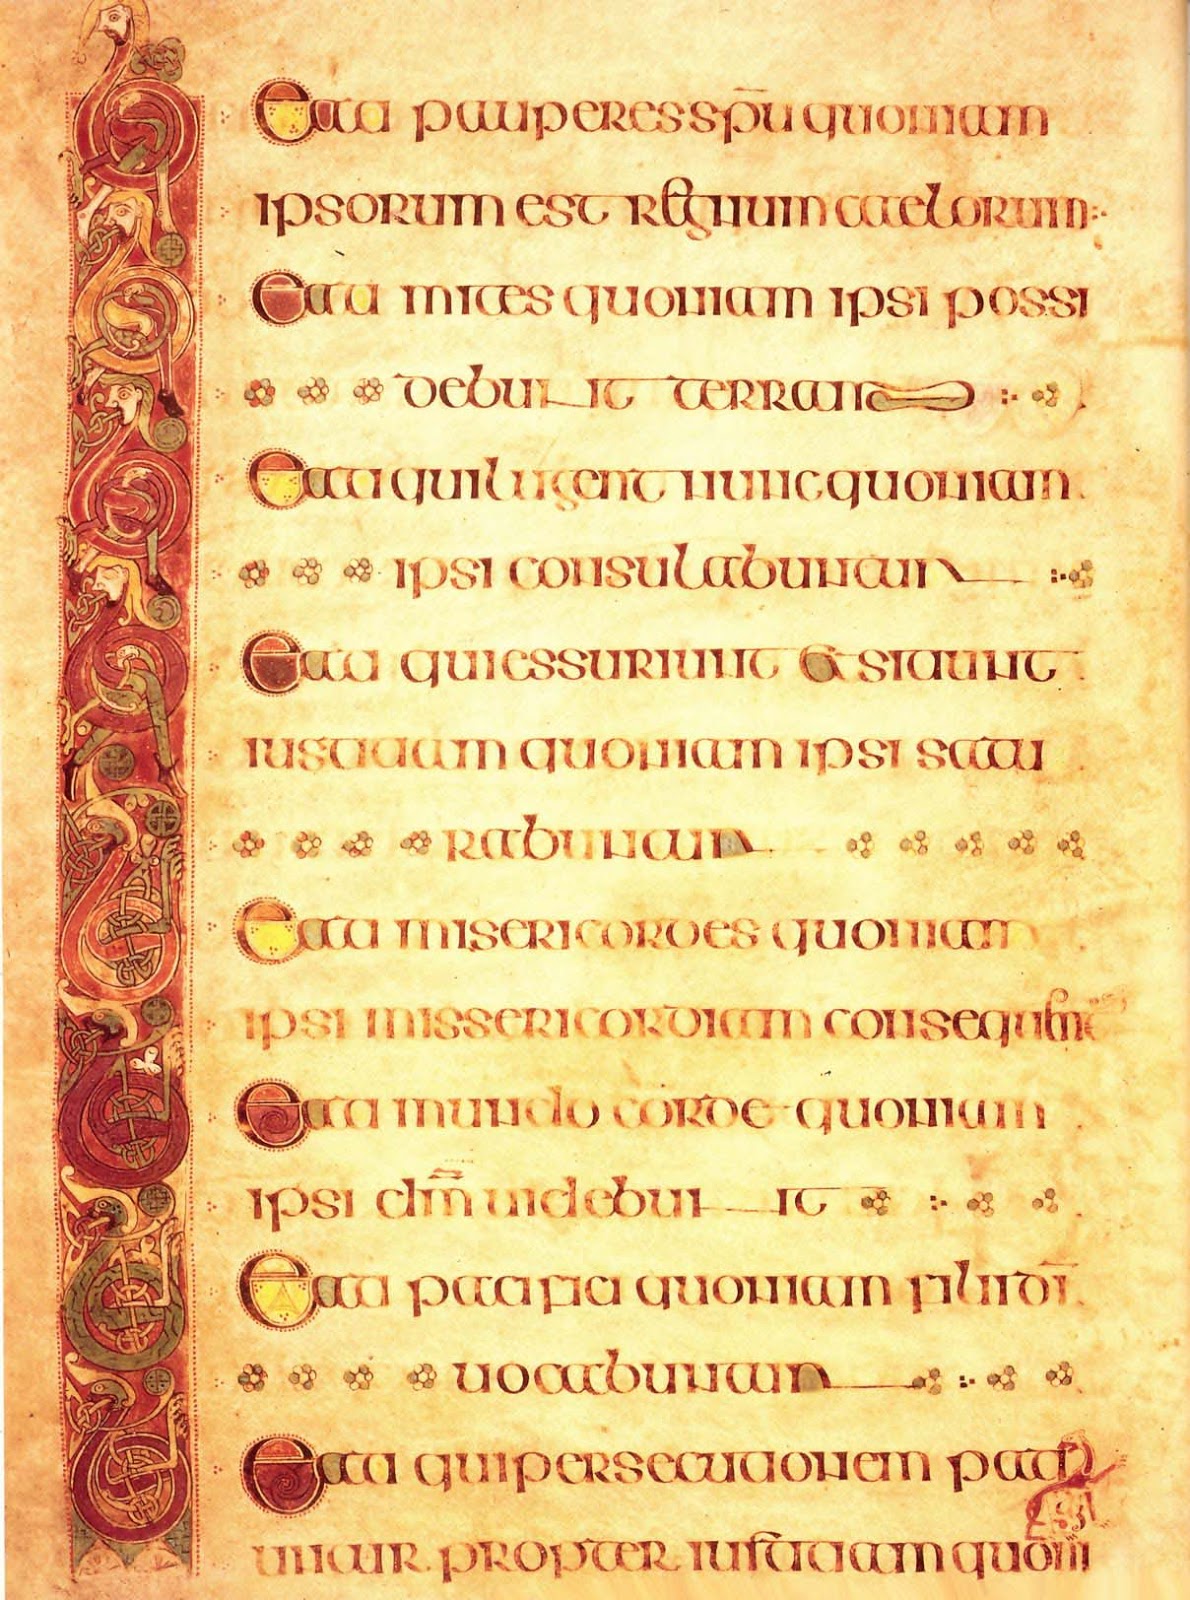 Eati pauperes sp̄u quoniam
ipsorum est regnum caelorum
Eati mites quoniam ipsi possi
debunt terram
Eati qui lugent nunc quoniam
ipsi consulabuntur
Eati qui essuriunt & sitiunt
iustitiam quoniam ipsi satu
rabuntur
Eati misericordes quoniam
ipsi missericordiam consequ
Eati mundo corde quoniam
ipsi dm̄ uidebunt
Eati pacifici quoniam filii dī
uocabuntur
Eati qui persecutionem pati
untur propter iustitiam quoni